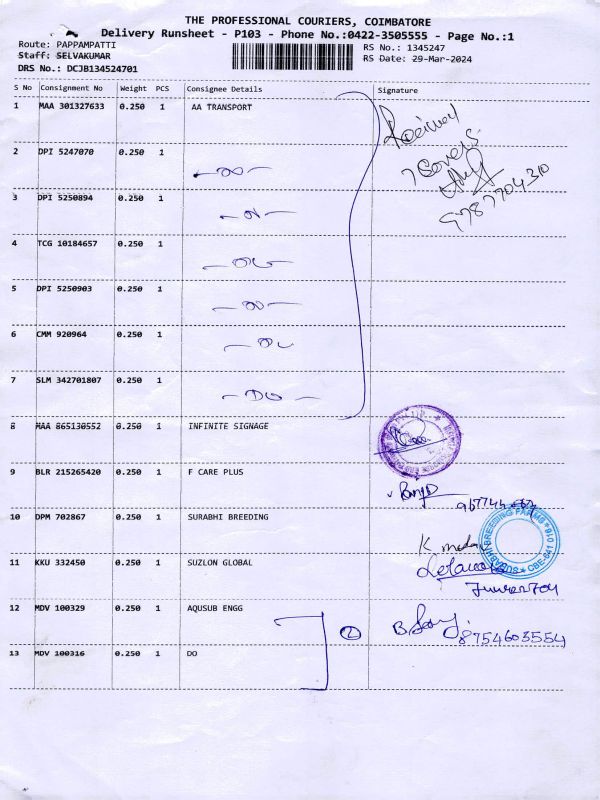 THE PROFESSIONAL COURIERS, COIMBATORE
Delivery Runsheet - P103 - Phone No.:0422-3505555 - Page No.:1
Route: PAPPAMPATTI
RS No.: 1345247
Staff: SELVAKUMAR
RS Date: 29-Mar-2024
DRS No.: DCJB134524701
S No Consignment No Weight PCS Consignee Details Signature
1 MAA 301327633 0.250 1 AA TRANSPORT
Received
2 DPI 5247070 0.250 1 -DO-
7 Covers
3 DPI 5250894 0.250 1 -DO-
9787704310
4 TCG 10184657 0.250 1 -DO-
5 DPI 5250903 0.250 1 -DO-
6 CMM 920964 0.250 1 -DO-
7 SLM 342701807 0.250 1 -DO-
8 MAA 865130552 0.250 1 INFINITE SIGNAGE
9 BLR 215265420 0.250 1 F CARE PLUS
10 DPM 702867 0.250 1 SURABHI BREEDING
SURABHI BREEDING FARMS CBE-641 016
11 KKU 332450 0.250 1 SUZLON GLOBAL
12 MDV 100329 0.250 1 AQUSUB ENGG
2
8754603554
13 MDV 100316 0.250 1 DO